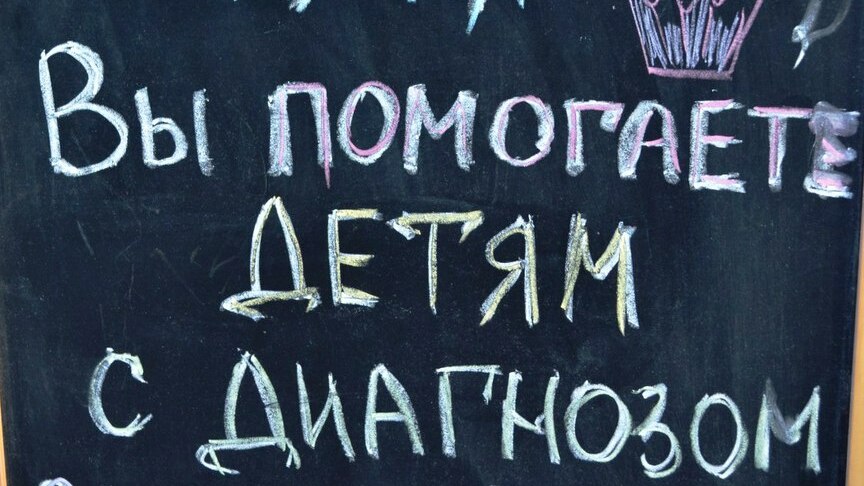 Вы ПОМОГАЕТЕ
ДЕТЯМ
С ДИАГНОЗОМ